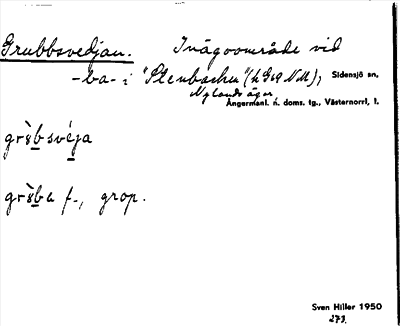 Grubbsvedjan. Inägoområde vid
-ba- i "Stenbacken" (h G 69 NM), Sidensjö sn,
Nylands ägor
Ångermanl. n. doms. tg., Västernorrl. l.
grò̀bsvéja
gròba f., grop.
Sven Hiller 1950
273.